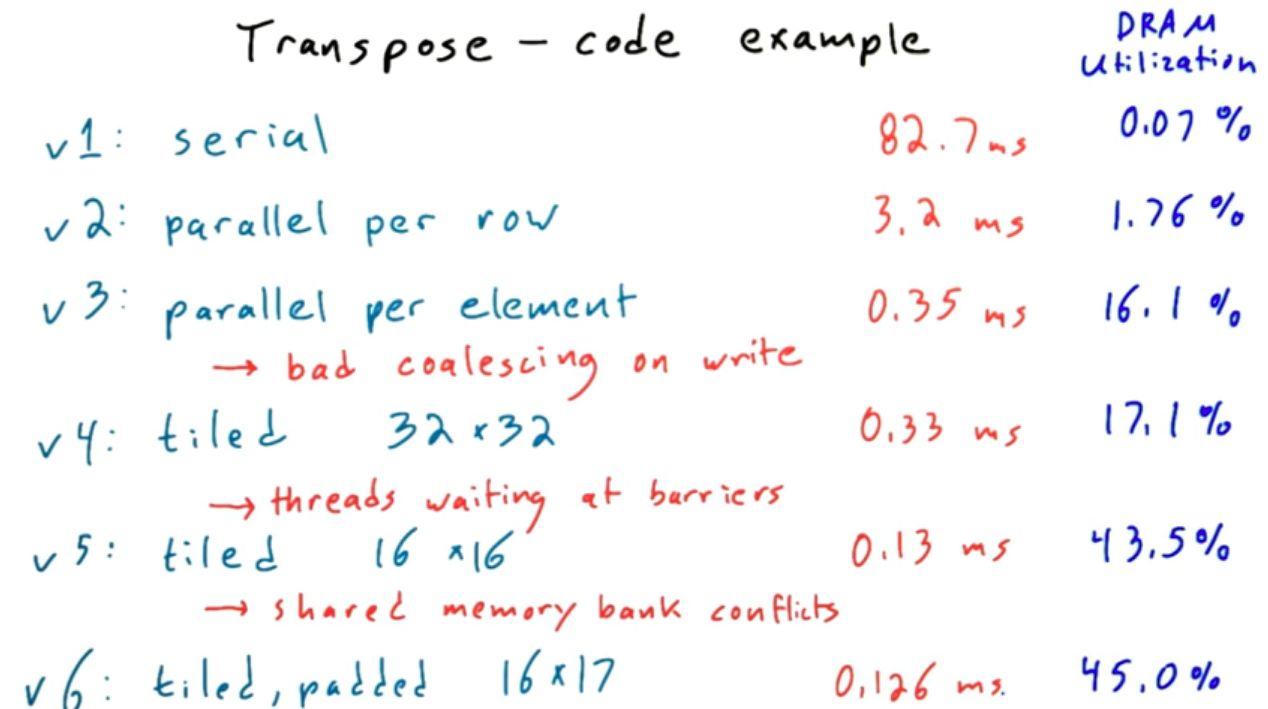 Transpose - code example
DRAM
Utilization
v1: serial 82.7 ms 0.07 %
v2: parallel per row 3.2 ms 1.76 %
v3: parallel per element 0.35 ms 16.1 %
→ bad coalescing on write
v4: tiled 32 x 32 0.33 ms 17.1 %
→ threads waiting at barriers
v5: tiled 16 x 16 0.13 ms 43.5 %
→ shared memory bank conflicts
v6: tiled, padded 16 x 17 0.126 ms. 45.0 %